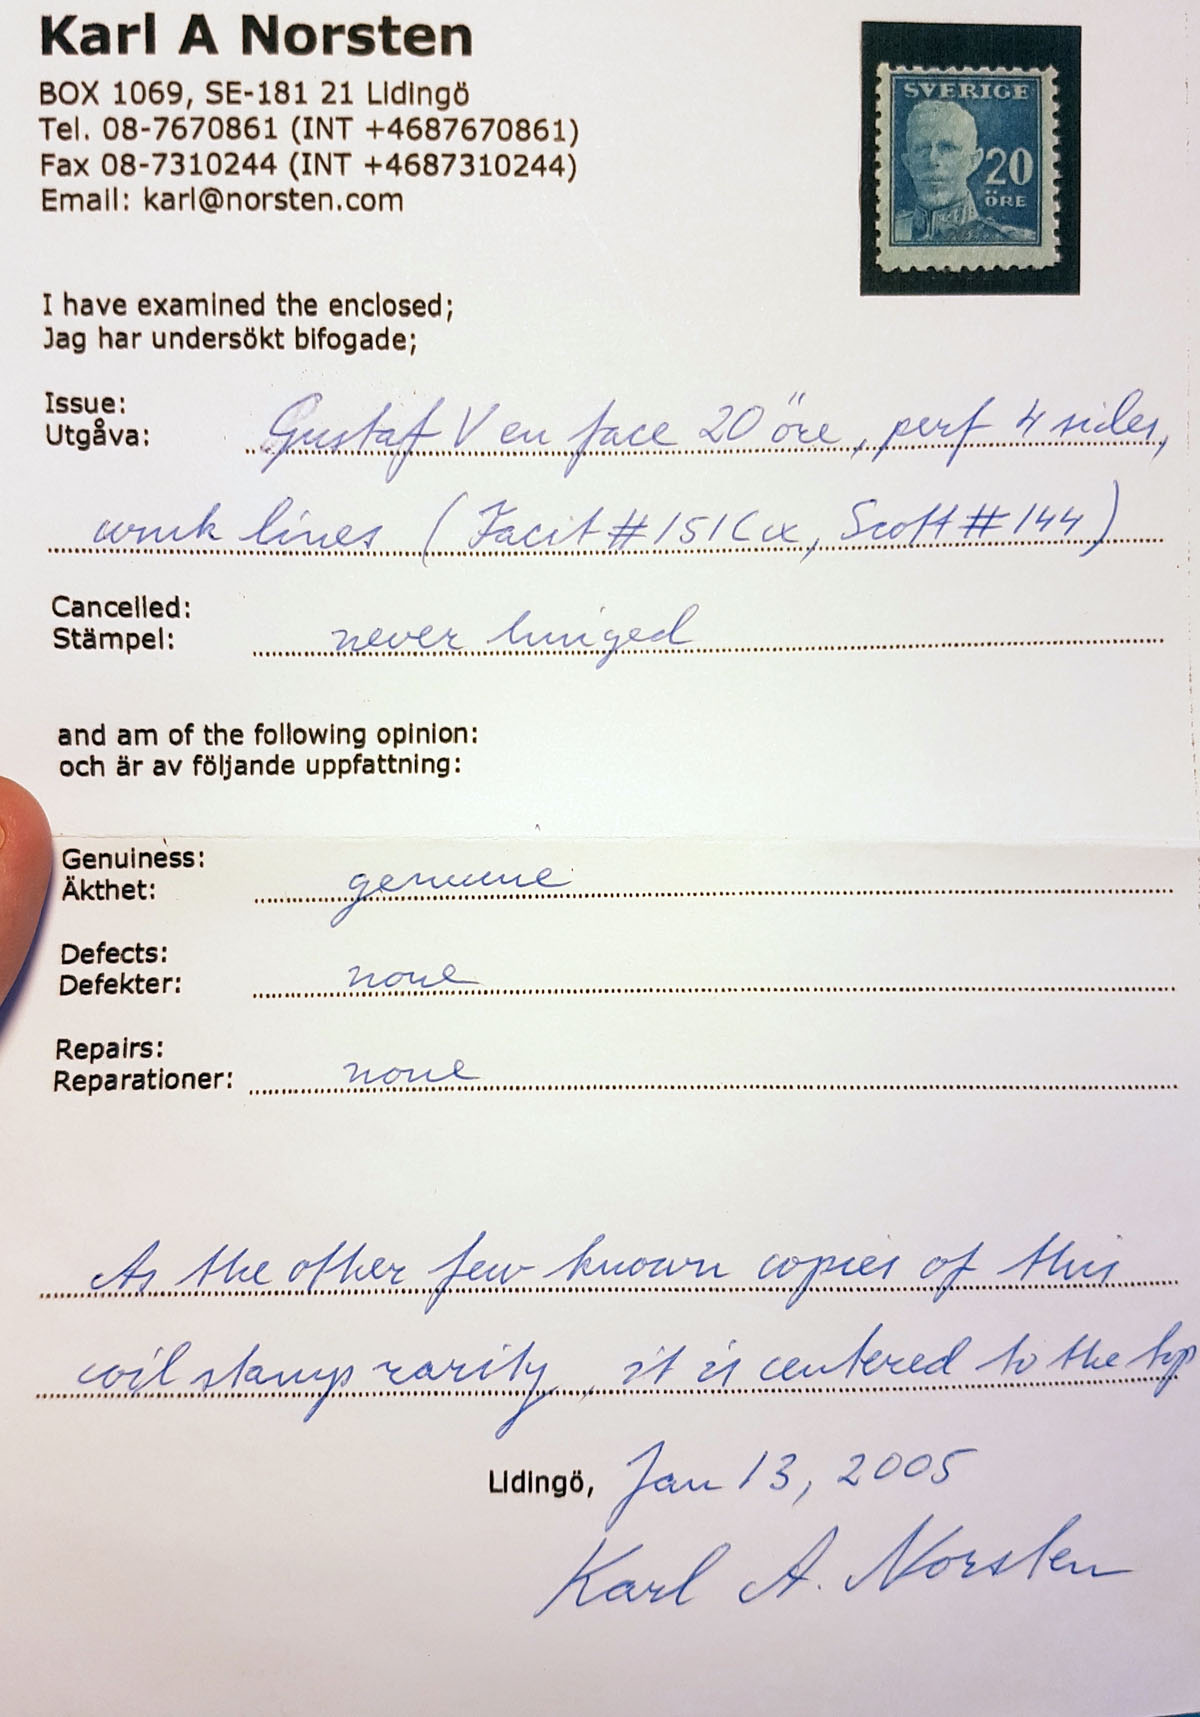 Karl A Norsten
BOX 1069, SE-181 21 Lidingö
Tel. 08-7670861 (INT +4687670861)
Fax 08-7310244 (INT +4687310244)
Email: karl@norsten.com
SVERIGE
20
ÖRE
I have examined the enclosed;
Jag har undersökt bifogade;
Issue:
Utgåva: Gustaf V en face 20 öre, perf 4 sides,
wmk lines (Facit #151Ccx, Scott #144)
Cancelled:
Stämpel: never hinged
and am of the following opinion:
och är av följande uppfattning:
Genuiness:
Äkthet: genuine
Defects:
Defekter: none
Repairs:
Reparationer: none
As the other few known copies of this
coil stamp rarity, it is centered to the top
Lidingö, Jan 13, 2005
Karl A. Norsten